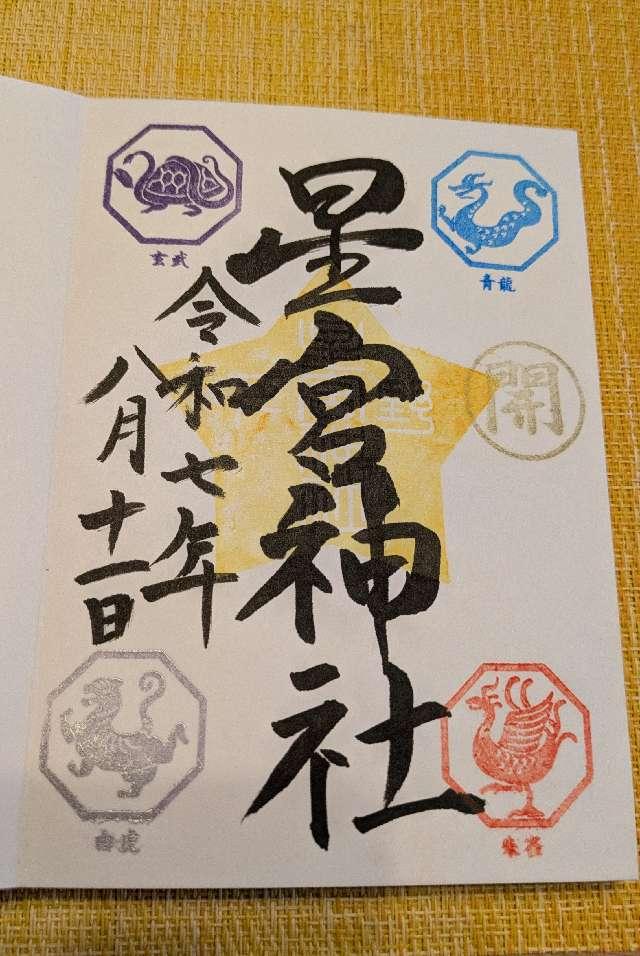 青龍
開
朱雀
星宮神社
玄武
令和七年
八月十一日
白虎